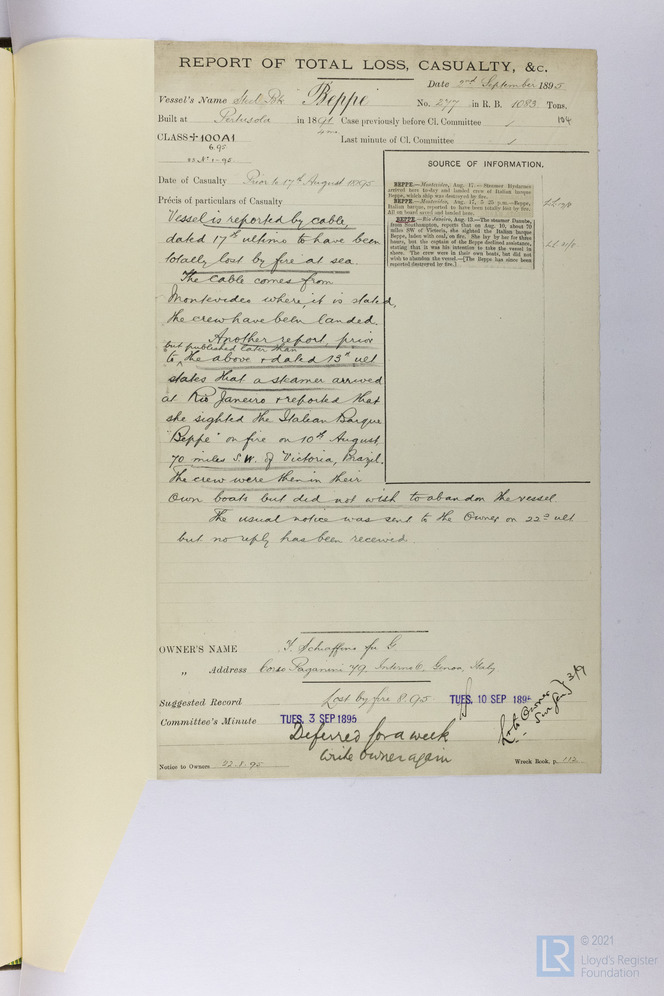 REPORT OF TOTAL LOSS, CASUALTY, &c.
Date 2nd September 1895
Vessel's Name Steel Bk "Beppe" No. 277 in R. B. 1083 Tons.
Built at Pertusola in 1891 Case previously before Cl. Committee /
4 mo
CLASS +100A1 Last minute of Cl. Committee /
6.95
Date of Casualty Prior to 17th August 1895
Précis of particulars of Casualty
Vessel is reported by cable,
dated 17th ultimo to have been
totally lost by fire at sea.
The cable comes from
Montevideo where it is stated,
the crew have been landed.
Another report, prior
but published later than
to the above & dated 13th ult
states that a steamer arrived
at Rio Janeiro & reported that
she sighted the Italian Barque
"Beppe" on fire on 10th August
70 miles S.W. of Victoria, Brazil.
The crew were then in their
own boats but did not wish to abandon the vessel.
The usual notice was sent to the Owner on 22nd ult
but no reply has been received.
SOURCE OF INFORMATION.
BEPPE.—Montevideo, Aug. 17.—Steamer
arrived here to-day and landed crew of Italian barque
Beppe, which ship was destroyed by fire.
BEPPE.—Montevideo, Aug. 17, 5 25 p.m.—Beppe,
Italian barque, reported to have been totally lost by fire.
All on board saved and landed here.
BEPPE.—Rio Janeiro, Aug. 13.—The steamer Danube,
from Southampton, reports that on Aug. 10, about 70
miles SW of Victoria, she sighted the Italian barque
Beppe, laden with coal, on fire. She lay by her for three
hours, but the captain of the Beppe declined assistance,
stating that it was his intention to take the vessel in
shore. The crew were in their own boats, but did not
wish to abandon the vessel.—[The Beppe has since been
reported destroyed by fire.]
OWNER'S NAME F. Schiaffino fu G.
„ Address Corso Paganini 79, Interno 6, Genoa, Italy.
Suggested Record Lost by fire 8.95 TUES. 10 SEP 1895
Committee's Minute TUES. 3 SEP 1895
Deferred for a week
write owner again
Notice to Owners 22.8.95
Wreck Book, p. 112
© 2021
LR
Lloyd's Register
Foundation